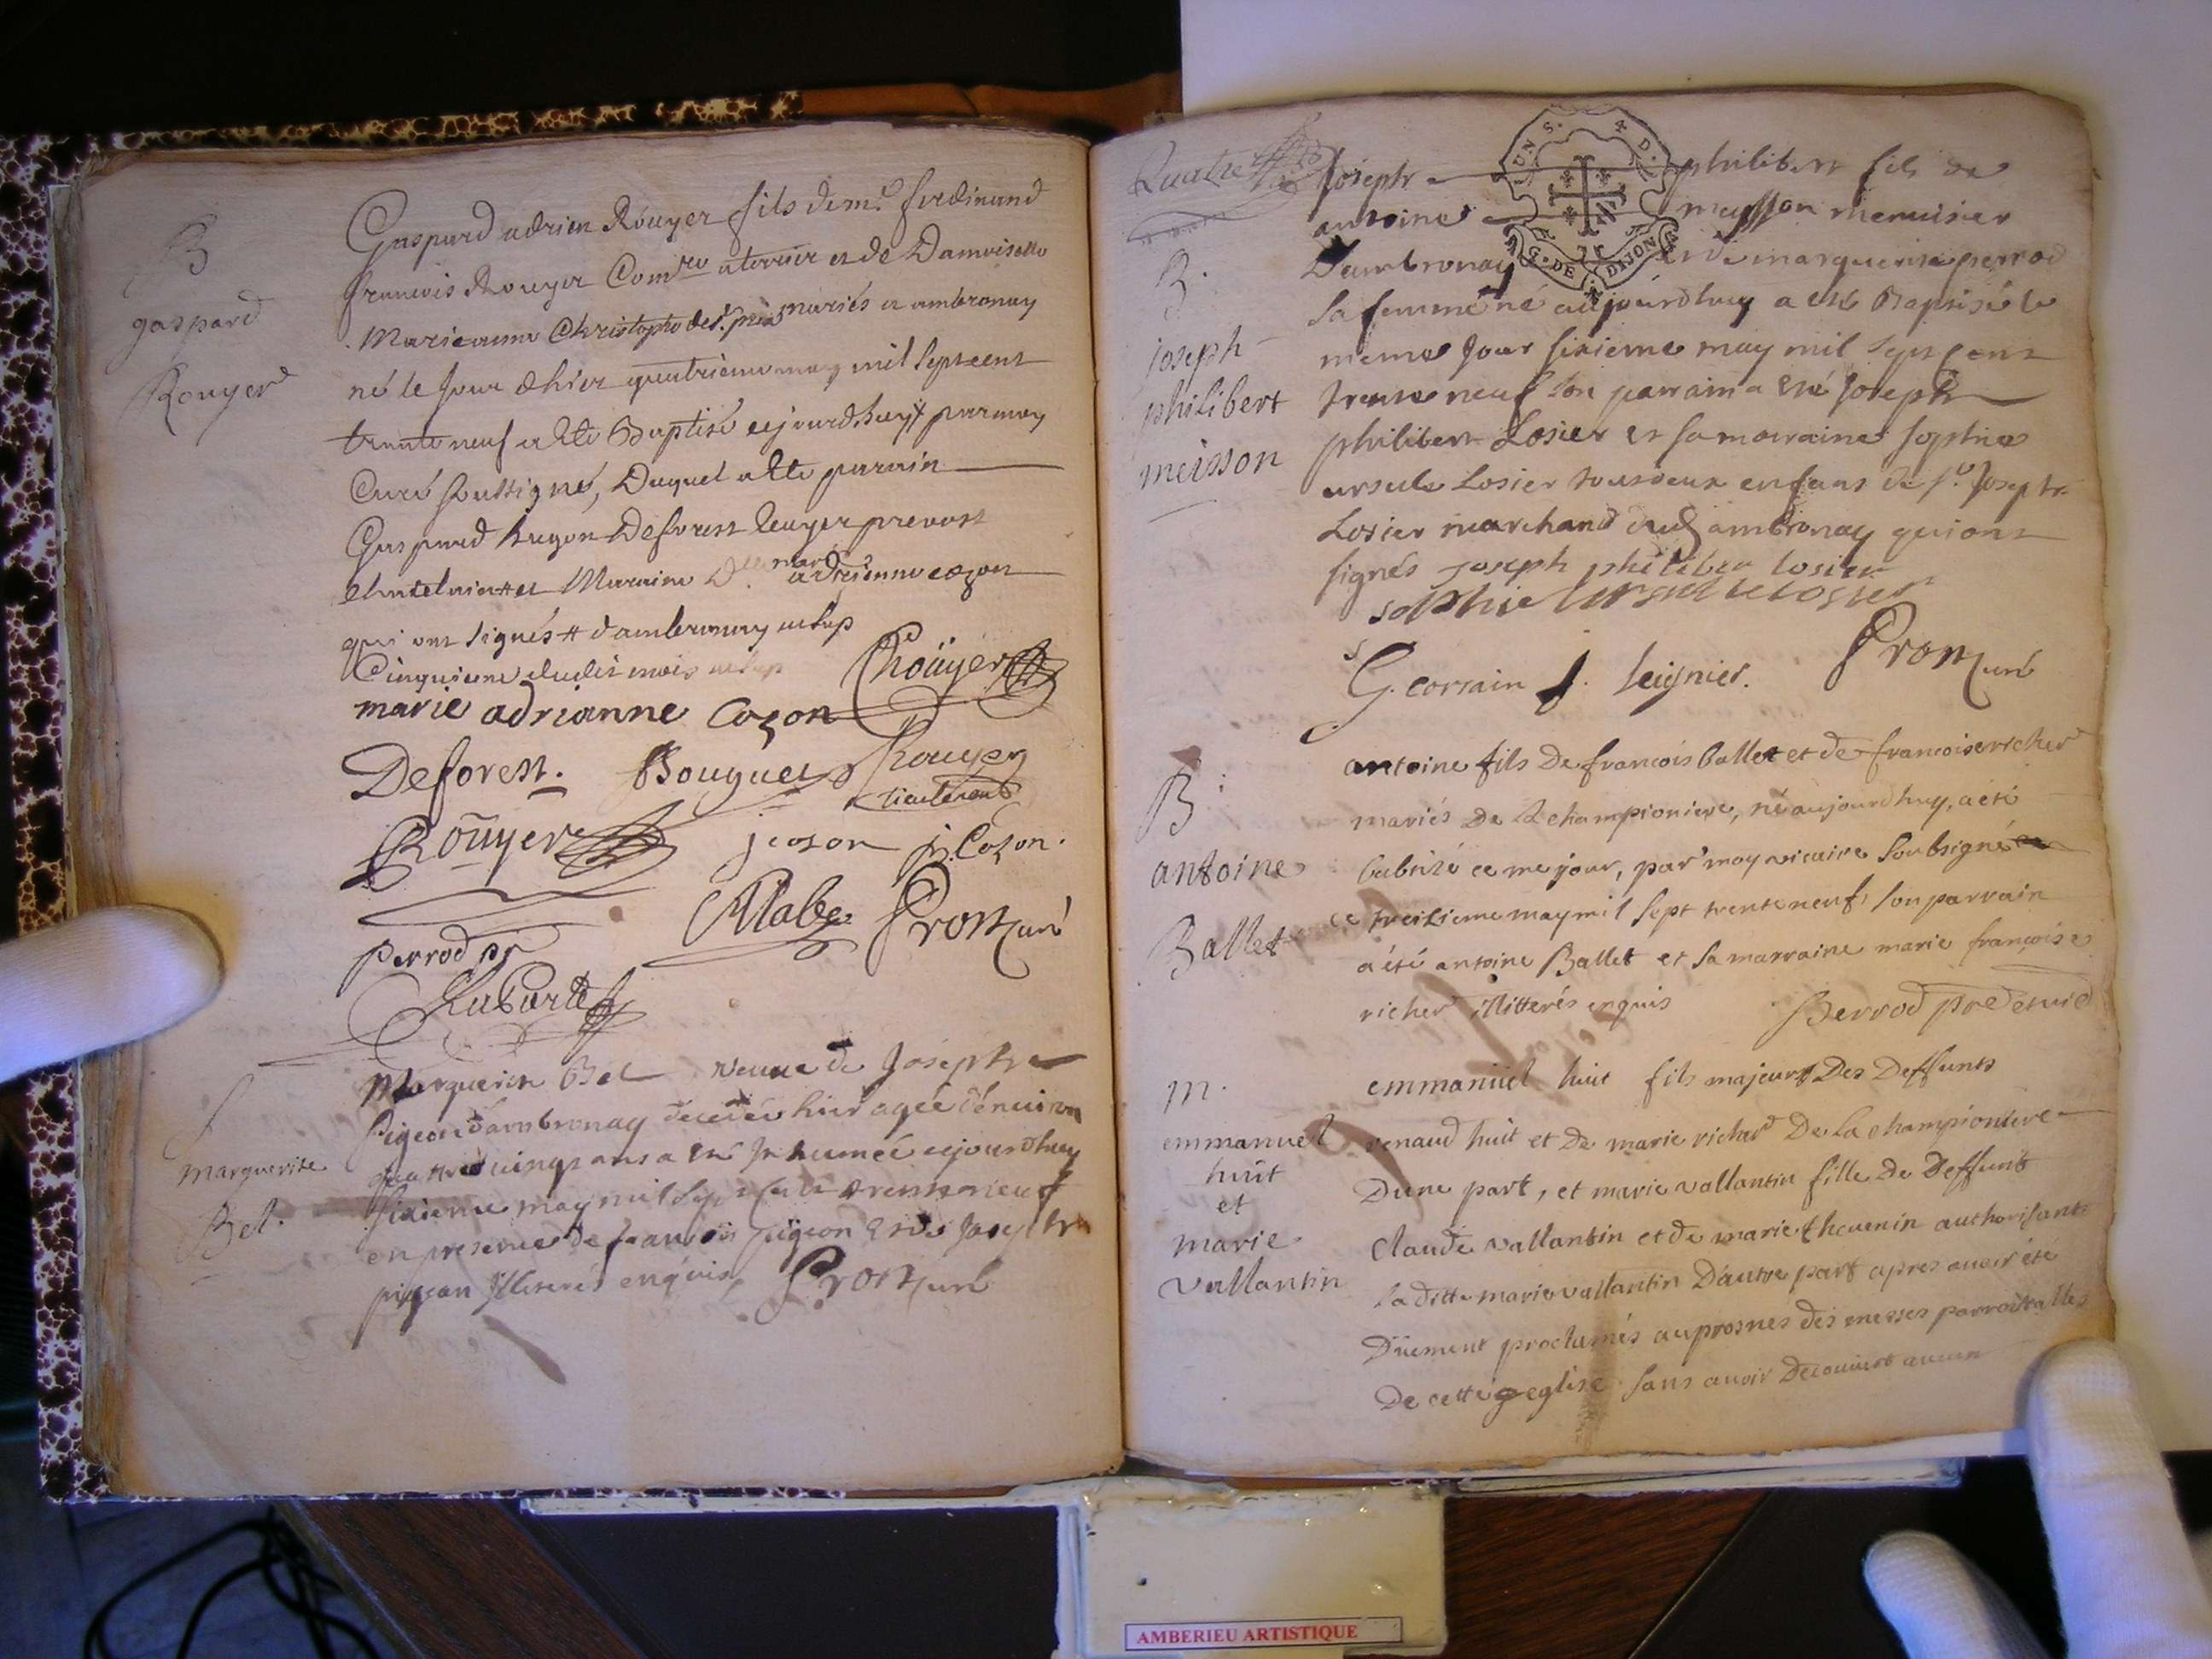 B
gaspard
Rouyer
Gaspard adrien Rouyer fils de mr. ferdinand
francois Rouyer Comre a terrier et de Damoiselle
Marieanne Christophe de st. prix mariés a ambronay
né le Jour dhier quatrieme may mil Septcent
trente neuf a ete Baptisé cejourdhuy parmoy
Curé Soussigné, Duquel a ete parain
Gaspard hugon Deforest Ecuyer prevost
et Maraine Dlle mar adrienne cozon
qui ont signés # dambronay
Cinquieme dudit mois
Roüyer
marie adrianne Cozon
Deforest. Bouguet Rouyer
lieutenant
Roüyer jcozon j. Cozon.
perrod ptr Prost curé
Marguerite
Bel.
Marguerite Bel veuve de Joseph
Pigeon dambronay decedée hier agée denviron
quattrevingt ans a eté Inhumée cejourdhuy
sixieme may mil Sept Cent trente neuf
en presence de francois pigeon et de Joseph
pigeon Illiterés enquis Prost curé
Quatre
B.
joseph
philibert
meisson
Joseph philibert fils de
antoine meysson menuisier
Dambronay et de marguerite perrod
Sa femme né aujourdhuy a eté Baptisé le
meme Jour sixieme may mil Sept Cent
trente neuf Son parrain a eté Joseph
philibert Losier et sa marraine sophie
ursule Losier tousdeux enfans de sr. Joseph
Losier marchand dud ambronay qui ont
signés joseph philiber losier
sophie ursule losier
G. corrain J. seignier. Prost curé
B
antoine
Ballet
antoine fils De francois ballet et de francoise richer
mariés De la championiere, né aujourdhuy, a été
babtizé ce me jour, par moy vicaire Soubsigné
ce treizieme may mil sept trente neuf, son parrain
a été antoine Ballet et sa marraine marie françoise
richer illitterés enquis Perrod
m.
emmanuel
huit
et
marie
vallantin
emmanuel huit fils majeur Des Deffunts
renaud huit et De marie richer De la championiere
Dune part, et marie vallantin fille De Deffunt
Claude vallantin et de marie thevenin authorisant
laditte marie vallantin D'autre part apres avoir été
Düement proclamés auprosnes des messes parroissialles
De cette eglise sans avoir Decouvert aucun
G. DE DIJON
AMBERIEU ARTISTIQUE